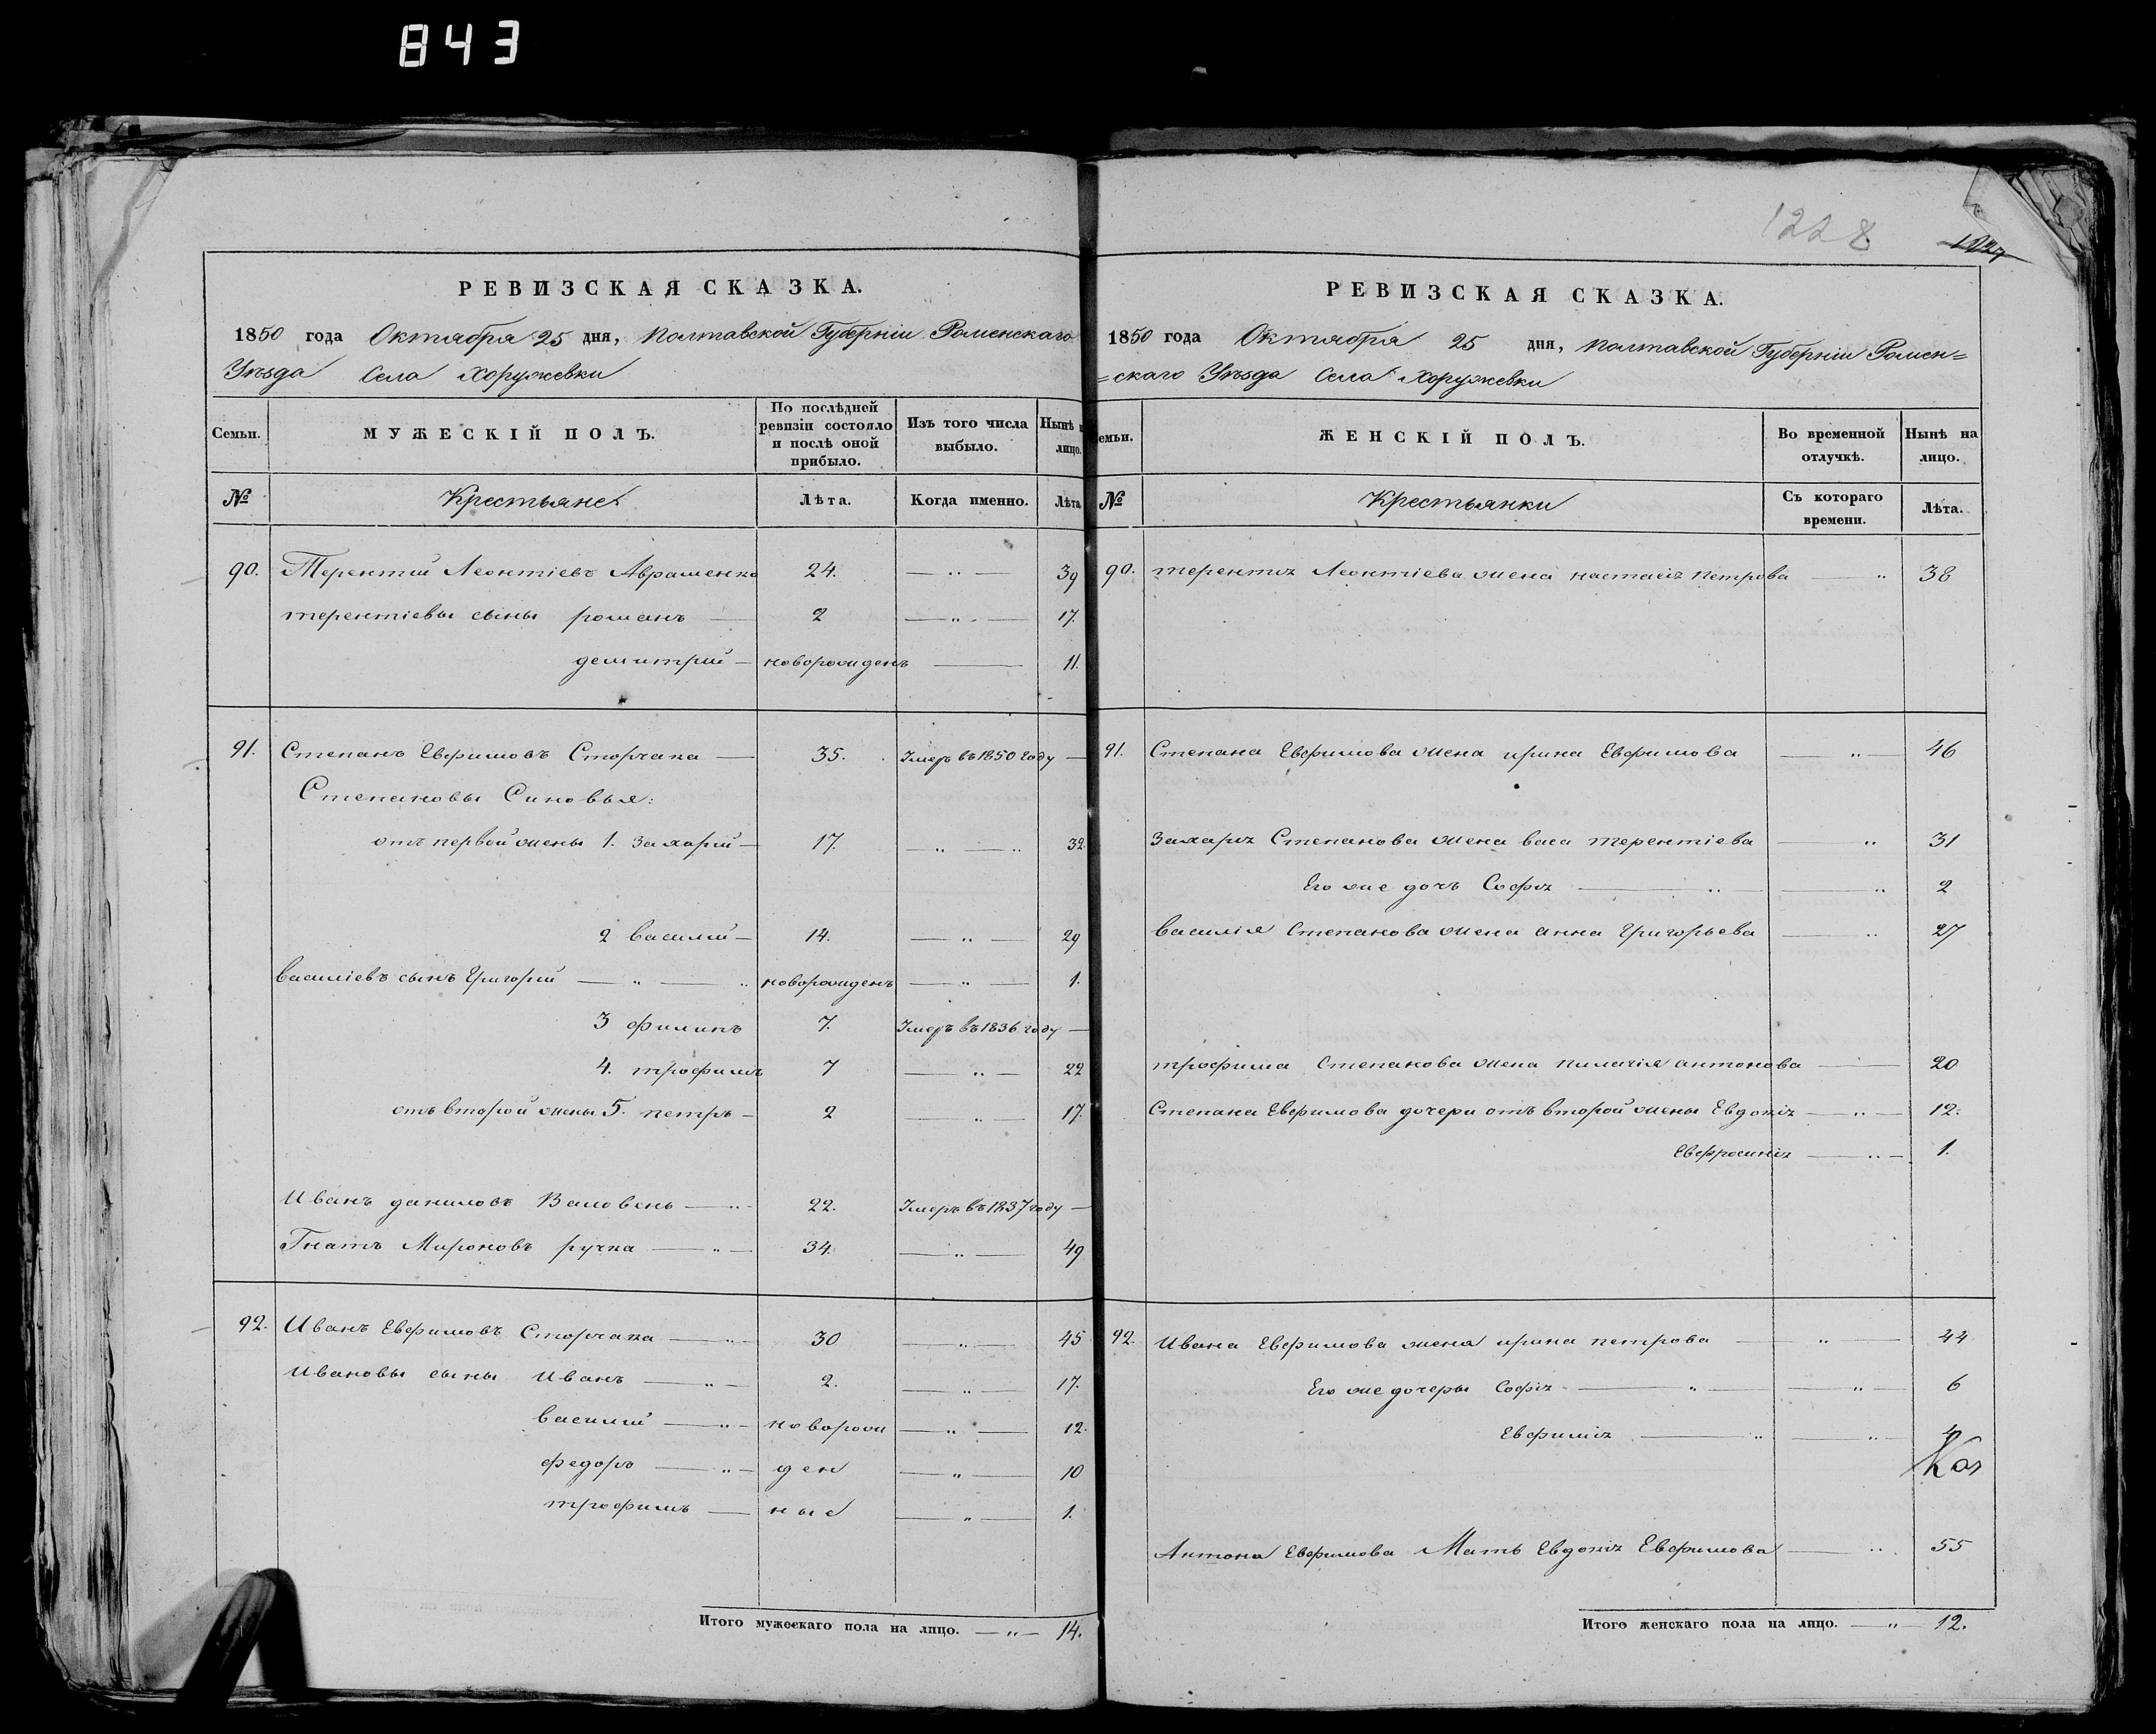 843
1228
1227
РЕВИЗСКАЯ СКАЗКА.
1850 года Октября 25 дня, Полтавской Губерніи Роменскаго
Уѣзда Села Хоружевки
Семьи. МУЖЕСКІЙ ПОЛЪ. По послѣдней ревизіи состояло и послѣ оной прибыло. Изъ того числа выбыло. Нынѣ на лицо.
№ Крестьяне Лѣта. Когда именно. Лѣта
90. Терентий Леонтіевъ Авраменко 24. — „ — 39
терентіевы сыны романъ — 2 — „ — 17.
демитрий — новорожденъ — 11.
91. Степанъ Евфимовъ Сторчака — 35. Умеръ въ 1850 году —
Степановы Синовья:
отъ первой жены 1. Захарій — 17. — „ — „ 32.
2 василій — 14. — „ — 29
василіевъ сынъ Григорій — „ — „ новорожденъ — „ — 1.
3 филипъ 7. Умеръ въ 1836 году —
4. трофимъ 7 — „ — 22
отъ второй жены 5. петръ — 2 — „ — 17.
Иванъ даниловъ Вановень — „ - 22. Умеръ въ 1837 году —
Гнатъ Мироновъ ручка — „ — 34. — „ — 49
92. Иванъ Евфимовъ Сторчака — „ — 30 — „ — 45
Ивановы сыны Иванъ — „ — 2. — „ — 17.
василий — „ — новорож — „ — 12.
федоръ — „ — ден — „ — 10
трофимъ — ные — „ — 1.
Итого мужескаго пола на лицо. — „ — 14.
РЕВИЗСКАЯ СКАЗКА.
1850 года Октября 25 дня, Полтавской Губерніи Ромен=
=скаго Уѣзда Села Хоружевки
Семьи. ЖЕНСКІЙ ПОЛЪ. Во временной отлучкѣ. Нынѣ на лицо.
№ Крестьянки Съ котораго времени. Лѣта.
90. терентія Леонтіева жена настасія петрова — „ 38
91. Степана Евфимова жена ирина Евфимова — „ — 46
Захарія Степанова жена васа терентіева — „ 31
Его же дочь Софія — „ — „ 2
василія Степанова жена анна Григорьева — „ 27
трофима Степанова жена пилагія антонова — 20
Степана Евфимова дочери отъ второй жены Евдокія — „ — 12.
Евфросинія — „ — 1.
92. Ивана Евфимова жена ирина петрова — „ — 44
Его же дочеры Софія — „ — „ — 6
Евфимія — „ — „ — 4
Антона Евфимова Мать Евдокія Евфимова — „ . 55
Итого женскаго пола на лицо. — „ — 12.